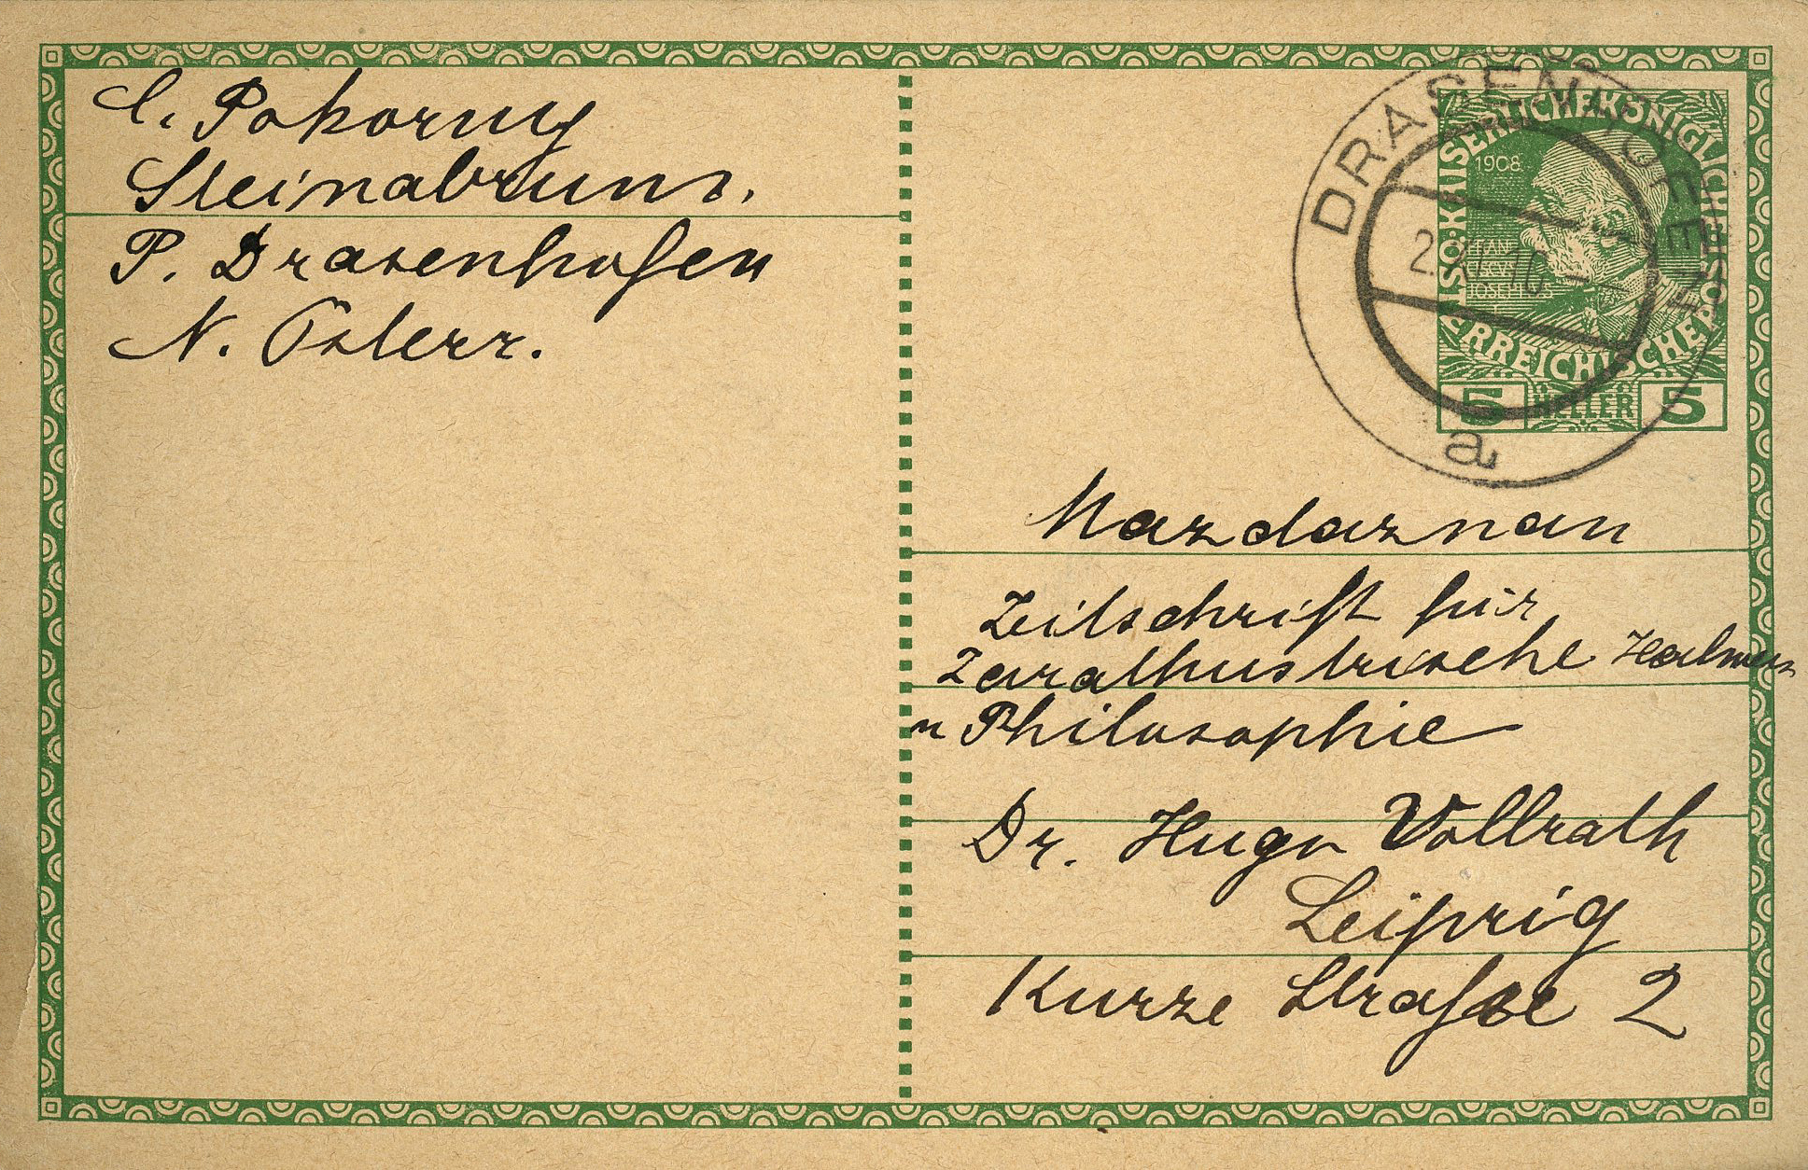 C. Pokorny
Steinabrunn.
P. Drasenhofen
N. Österr.
DRASENHOFEN
2. XI. 10
a
KAISERLICHE KÖNIGLICHE
ÖSTERREICHISCHE POST
1908
FRAN
CISCVS
JOSEPHVS
5 HELLER 5
Mazdaznan
Zeitschrift für
Zarathustrische
u Philosophie
Dr. Hugo Vollrath
Leipzig
Kurze Straße 2